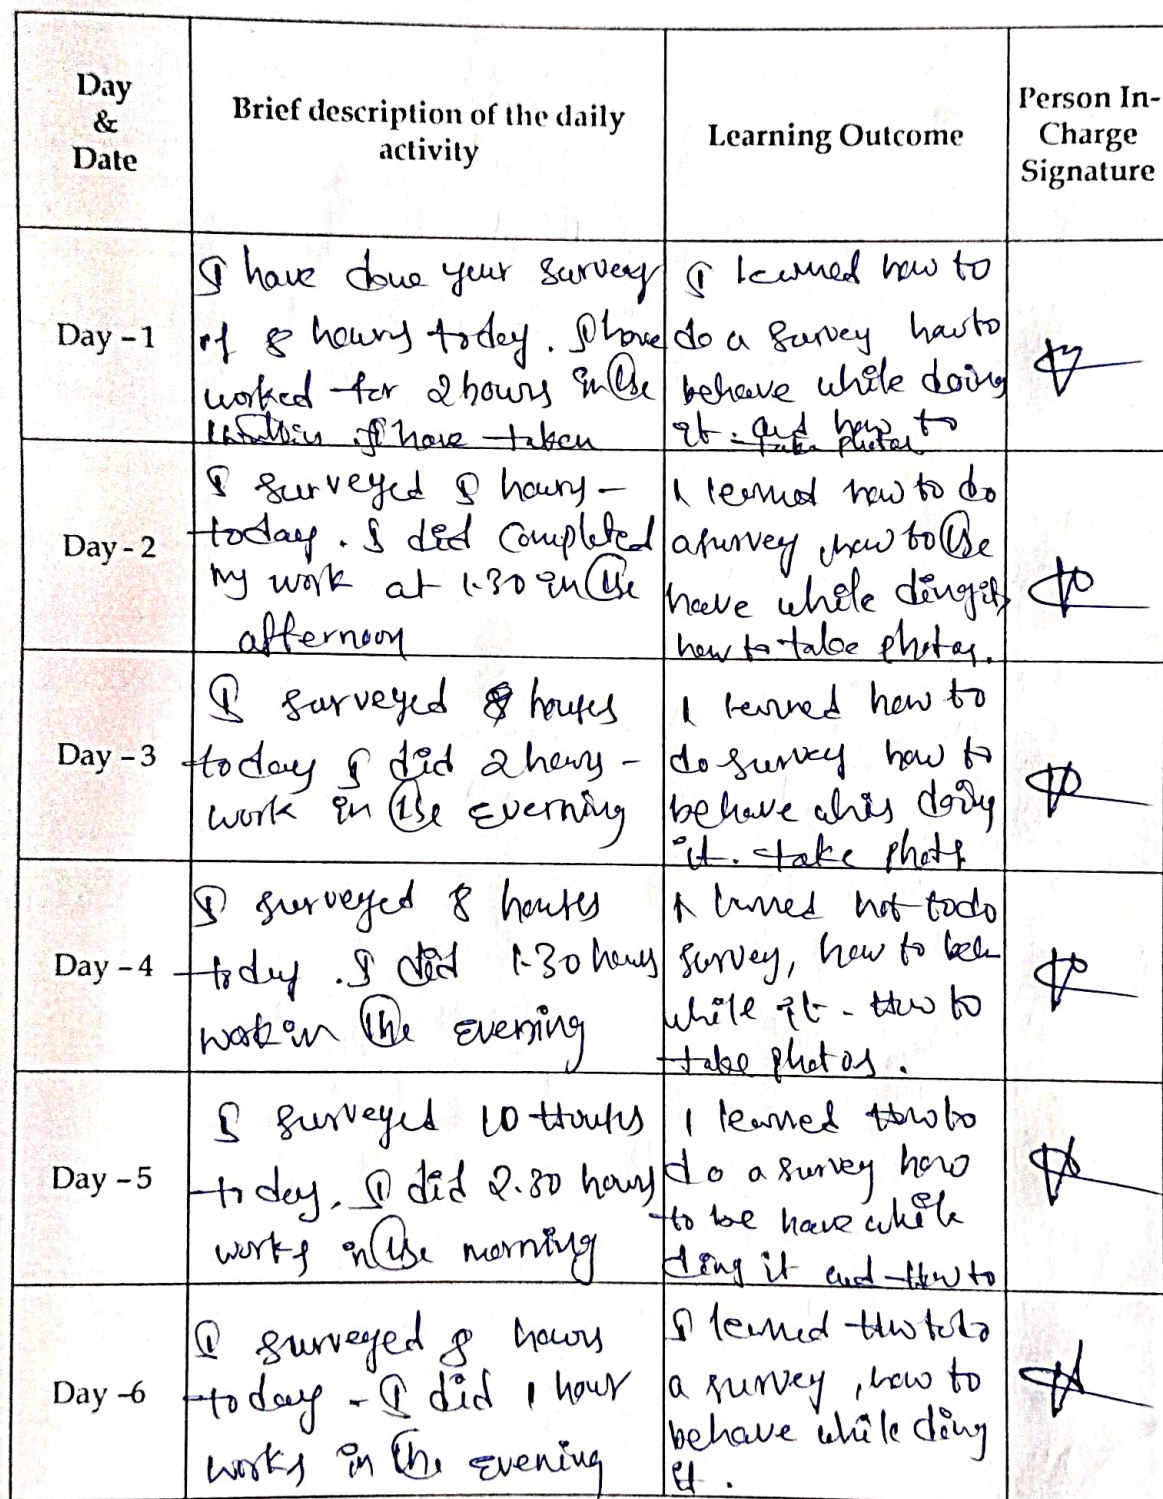 Day
&
Date
Brief description of the daily
activity
Learning Outcome
Person In-
Charge
Signature
Day - 1
I have done your survey
of 8 hours today. I have
worked for 2 hours in the
I have taken
I learned how to
do a survey how to
behave while doing
it. and how to
take photos
Day - 2
I surveyed 8 hours -
today. I did completed
my work at 1.30 in the
afternoon
I learned how to do
a survey, how to be
have while ding it,
how to take photos.
Day - 3
I surveyed 8 houses
today I did 2 hours -
work in the everning
I learned how to
do survey how to
behave doing
it. take phots
Day - 4
I surveyed 8 houses
today. I did 1.30 hours
work in the evening
I learned hot todo
survey, how to
while it - How to
take photos.
Day - 5
I surveyed 10 Houses
today. I did 2.30 hours
works in the morning
I learned How to
do a survey how
to be have while
ding it and How to
Day -6
I surveyed 8 hours
today - I did 1 hour
works in the evening
I learned How to do
a survey, how to
behave while ding
it.